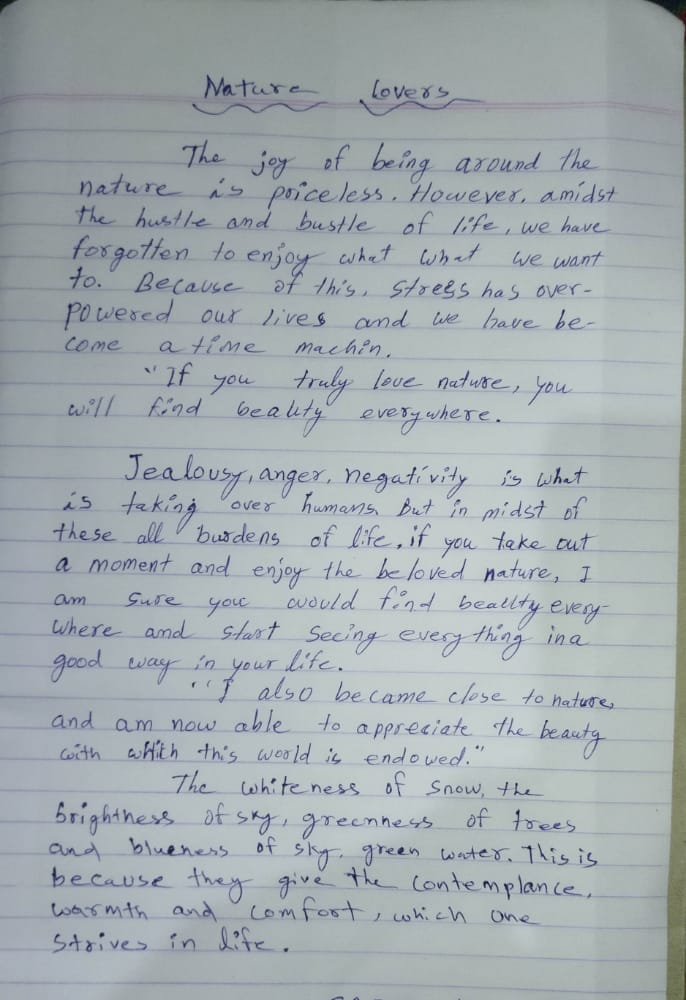 Nature Lovers
The joy of being around the
nature is priceless. However, amidst
the hustle and bustle of life, we have
forgotten to enjoy what what we want
to. Because of this, stress has over-
powered our lives and we have be-
come a time machin.
"If you truly love nature, you
will find beauty everywhere.
Jealousy, anger, negativity is what
is taking over humans. But in midst of
these all burdens of life, if you take out
a moment and enjoy the beloved nature, I
am sure you would find beauty every-
where and start seeing every thing in a
good way in your life.
"I also became close to nature,
and am now able to appreciate the beauty
with which this world is endowed."
The whiteness of snow, the
brightness of sky, greenness of trees
and blueness of sky, green water. This is
because they give the contemplance,
warmth and comfort, which one
strives in life.